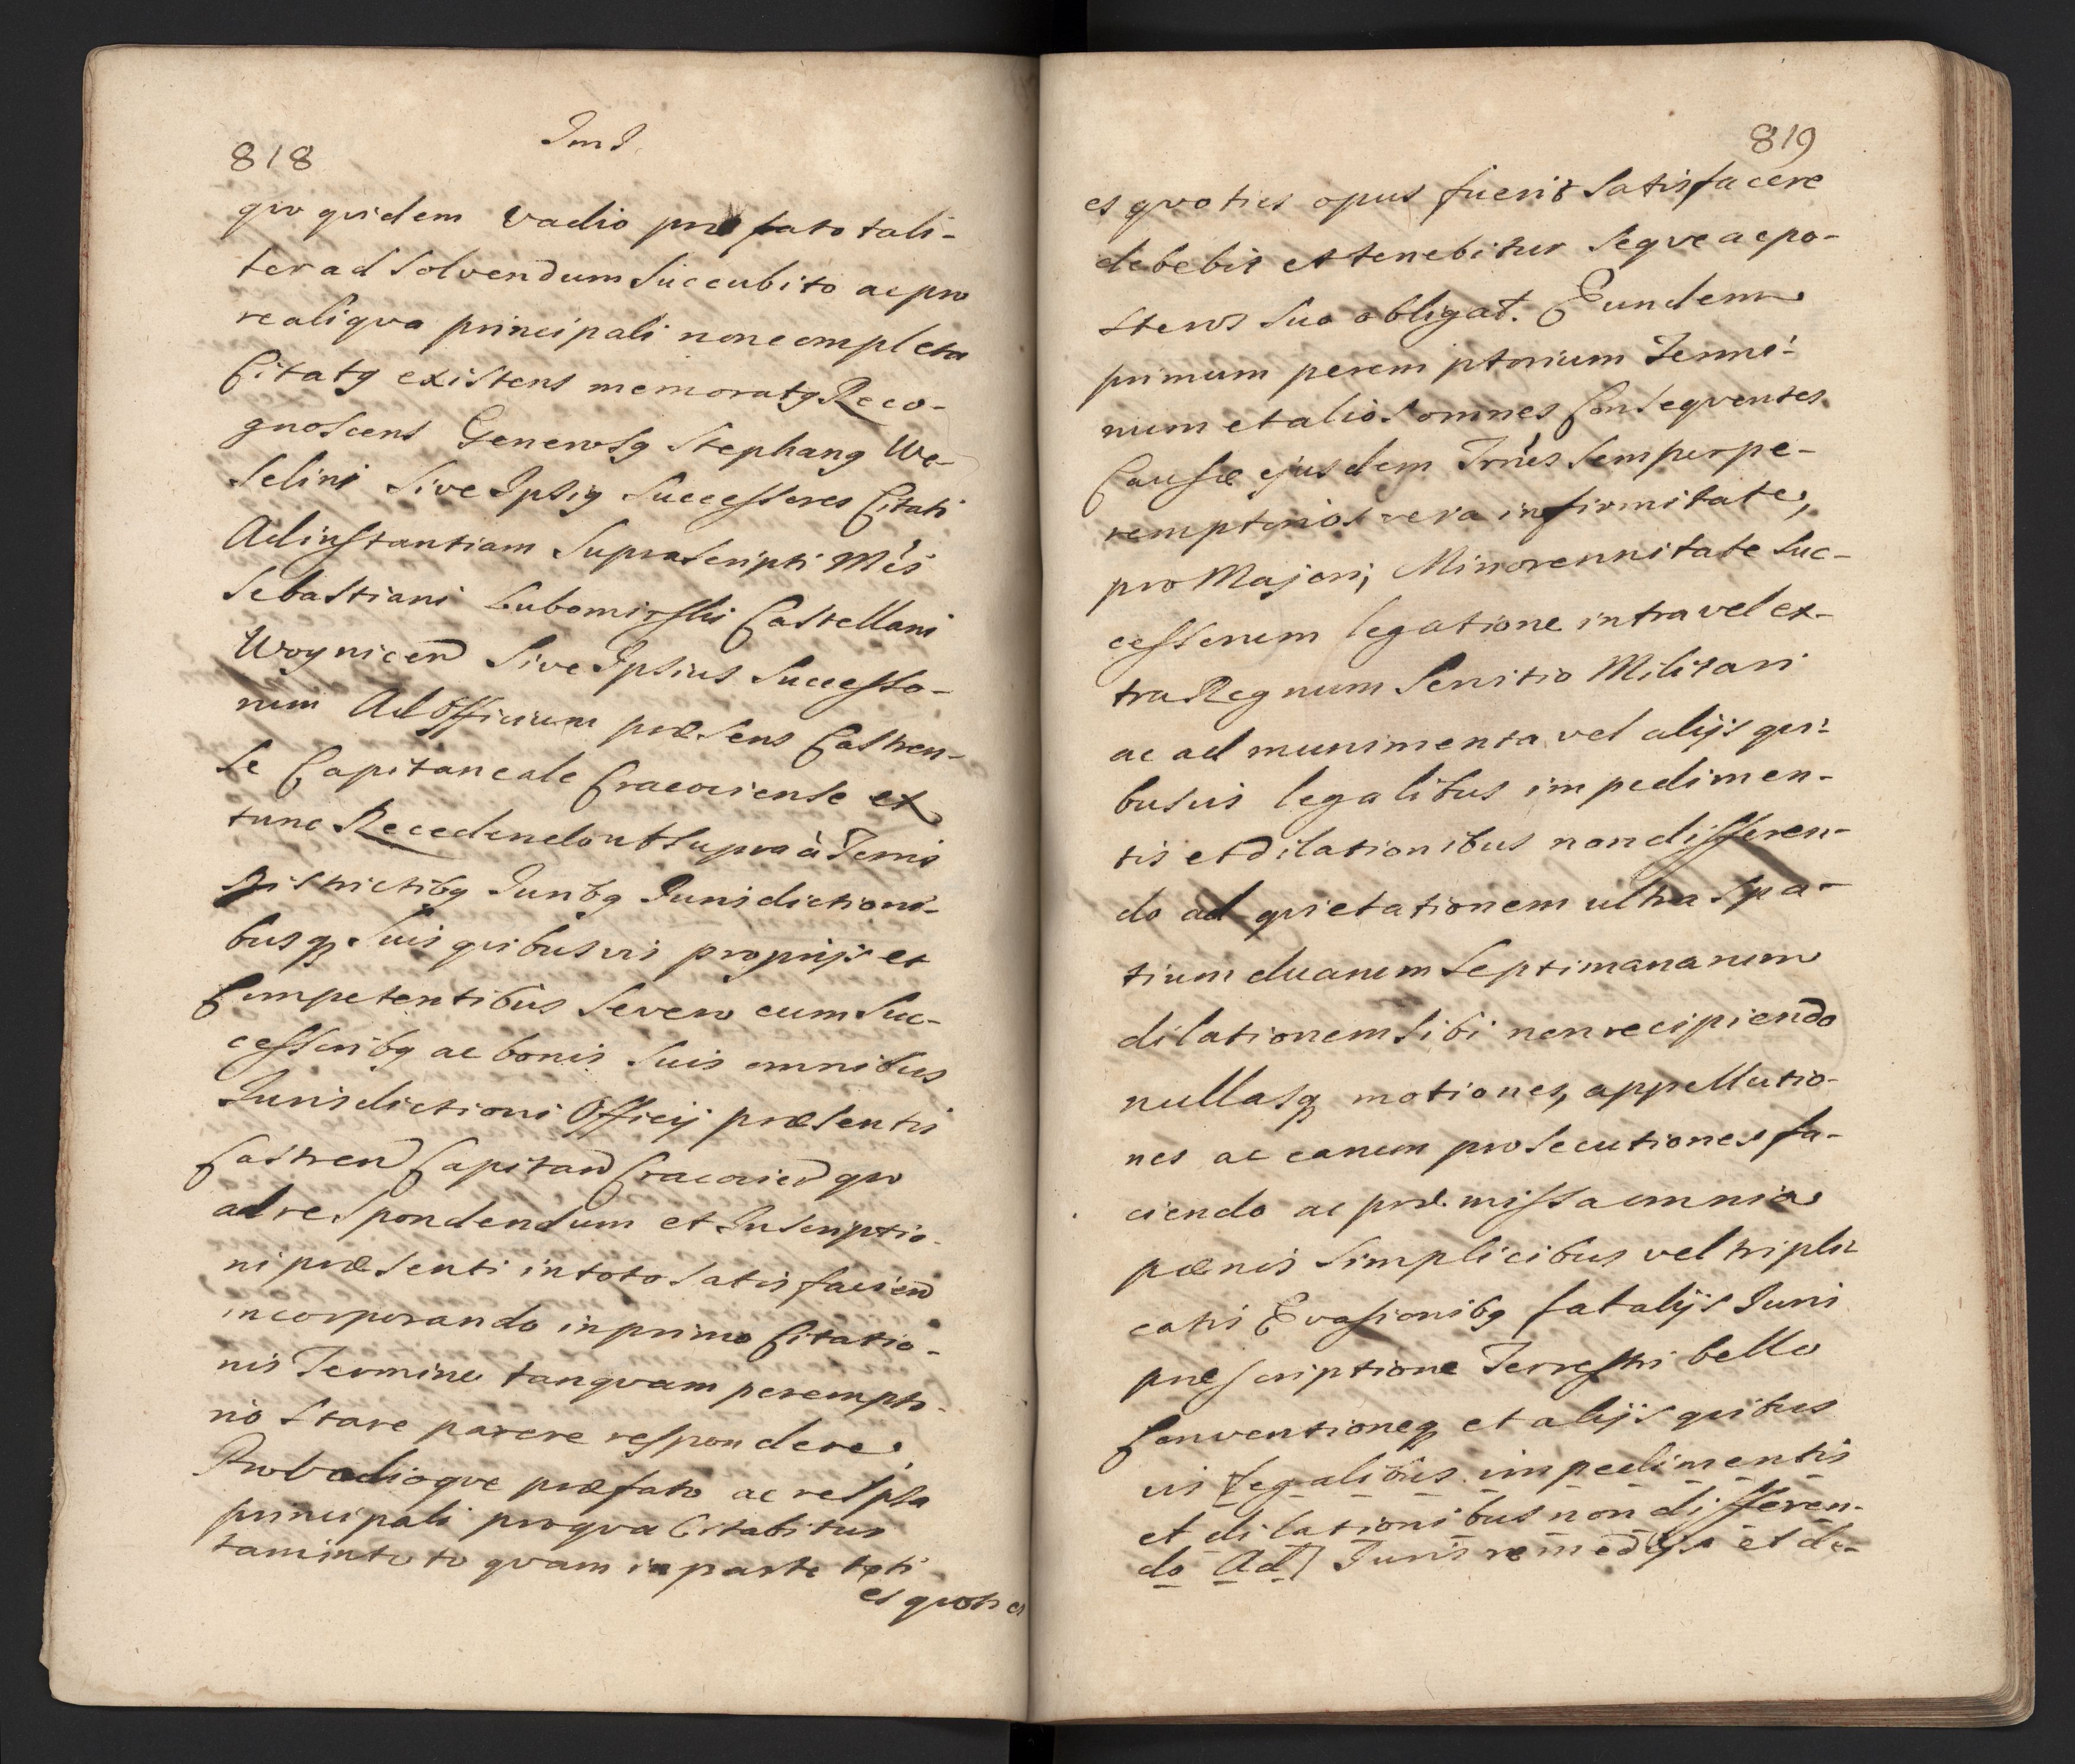 818
quo quidem Vadio præfato tali-
ter ad Solvendum Succubito ac pro
re aliqva principali non completa
Citatq existens memoratq Reco-
gnoscens Generosq Stephanq We-
Selini Sive Ipsiq Successores Citati
Ad instantiam Suprascripti Mci
Sebastiani Lubomirski Castellani
Woynicen Sive Ipsius Successo-
rum Ad Officium præsens Castren-
se Capitaneale Cracoviense ex
tunc Recedendo ut Supra à Terris
Districtibq Juribq Jurisdictioni-
busq Suis qvibusvis proprijs et
Competentibus Se vero cum Suc-
cessoribq ac bonis Suis omnibus
Jurisdictioni Officij præsentis
Castren Capitan Cracovien quo
ad respondendum et Inscriptio-
ni præsenti in toto Satisfacien
incorporando in primo Citatio-
nis Termino tanqvam perempto-
rio Stare parere respondere,
Pro Vadioqve præfato ac re ipsa
principali pro qva Citabitur
tam in toto qvam in parte toti-
es quoties
819
es qvoties opus fuerit Satisfacere
debebit et tenebitur Seqve ac po-
steros Suo obligat. Eundem
primum peremptorium Termi-
num et alios omnes Conseqventes
Causæ ejusdem Trnes Semper pe-
remptorios vera infirmitate,
pro Majori, Minorennitate Suc-
cessorum legatione intra vel ex-
tra Regnum Servitio Militari
ac ad munimenta vel alijs qvi-
busvis legalibus impedimen-
tis et dilationibus non differen-
do ad qvietationem ultra Spa-
tium duarum Septimanarum
dilationem Sibi non recipiendo
nullasq motiones, appellatio-
nes ac earum prosecutiones fa-
ciendo ac præmissa omnia
pœnis Simplicibus vel tripli-
catis Evasionibq fatalijs Juri
præscriptione Terrestri bello
Conventioneq et alijs qvibus
vis legalibus impedimentis
et dilationibus non differen-
do Ad] Juris remedijs et de-